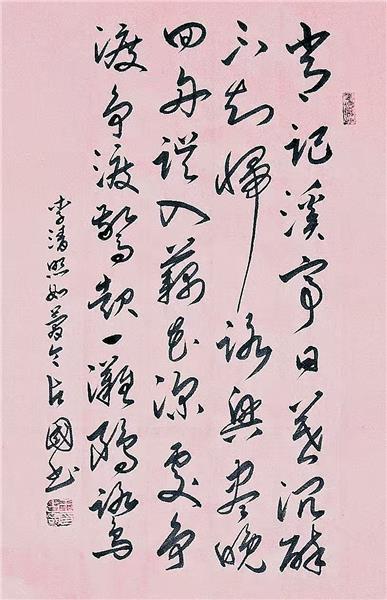 常記溪亭日暮沉醉
不知歸路興盡晚
回舟誤入藕花深處爭
渡爭渡驚起一灘鷗鷺
李清照如夢令占國书